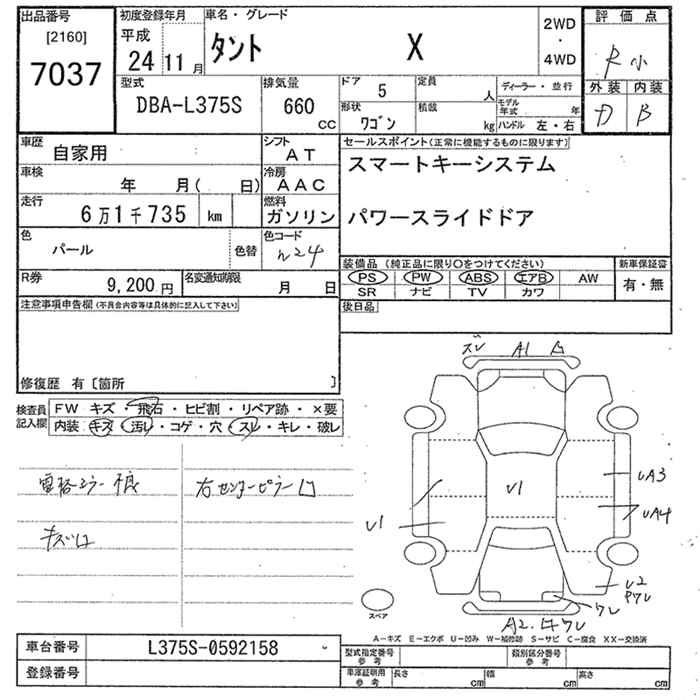 出品番号
[2160]
7037
初度登録年月
平成
24 11 月
車名・グレード
タント X
2WD
・
4WD
評価点
R 小
外装 内装
D B
型式
DBA-L375S
排気量
660
CC
ドア
5
定員
人
ディーラー・並行
モデル年式 年
形状
ワゴン
積載
kg
ハンドル 左・右
車歴
自家用
シフト
AT
車検
年 月( 日)
冷房
AAC
走行
6万1千735 km
燃料
ガソリン
色
パール
色替
色コード
W24
R券
9,200 円
名変通知期限
月 日
セールスポイント(正常に機能するものに限ります)
スマートキーシステム
パワースライドドア
装備品(純正品に限り○をつけてください)
新車保証書
PS PW ABS エアB AW
SR ナビ TV カワ
有・無
後日品
注意事項申告欄(不具合内容等は具体的に記入して下さい)
修復歴 有〔箇所 〕
検査員記入欄
FW キズ・飛石・ヒビ割・リペア跡・×要
内装・キズ・汚レ・コゲ・穴・スレ・キレ・破レ
電格ミラー
右センターピラー
キズ凹
ズレ A1
U1
U1
UA3
UA4
U2
ワレ
A2
スペア
A-キズ E-エクボ U-凹み W-補修跡 S-サビ C-腐食 XX-交換済
車台番号
L375S-0592158
登録番号
型式指定番号
参考
類別区分番号
参考
車庫証明用
参考
長さ cm
幅 cm
高さ cm